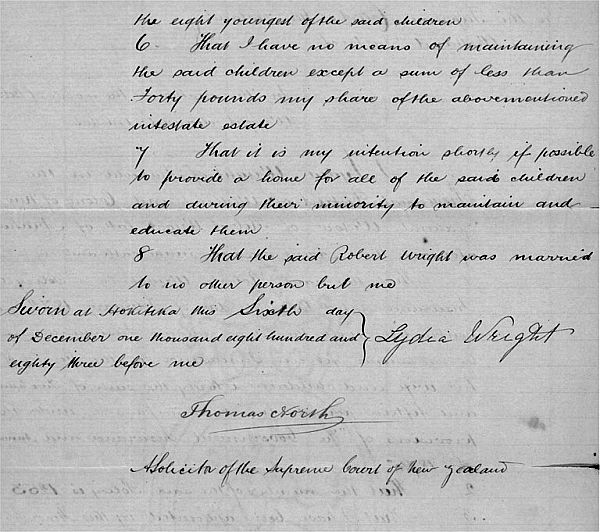 the eight youngest of the said children
6 That I have no means of maintaining
the said children except a sum of less than
Forty pounds my share of the abovementioned
intestate estate
7 That it is my intention shortly if possible
to provide a home for all of the said children
and during their minority to maintain and
educate them
8 That the said Robert Wright was married
to no other person but me
Sworn at Hokitika this Sixth day
of December one thousand eight hundred and
eighty three before me
Lydia Wright
Thomas North
A Solicitor of the Supreme Court of New Zealand